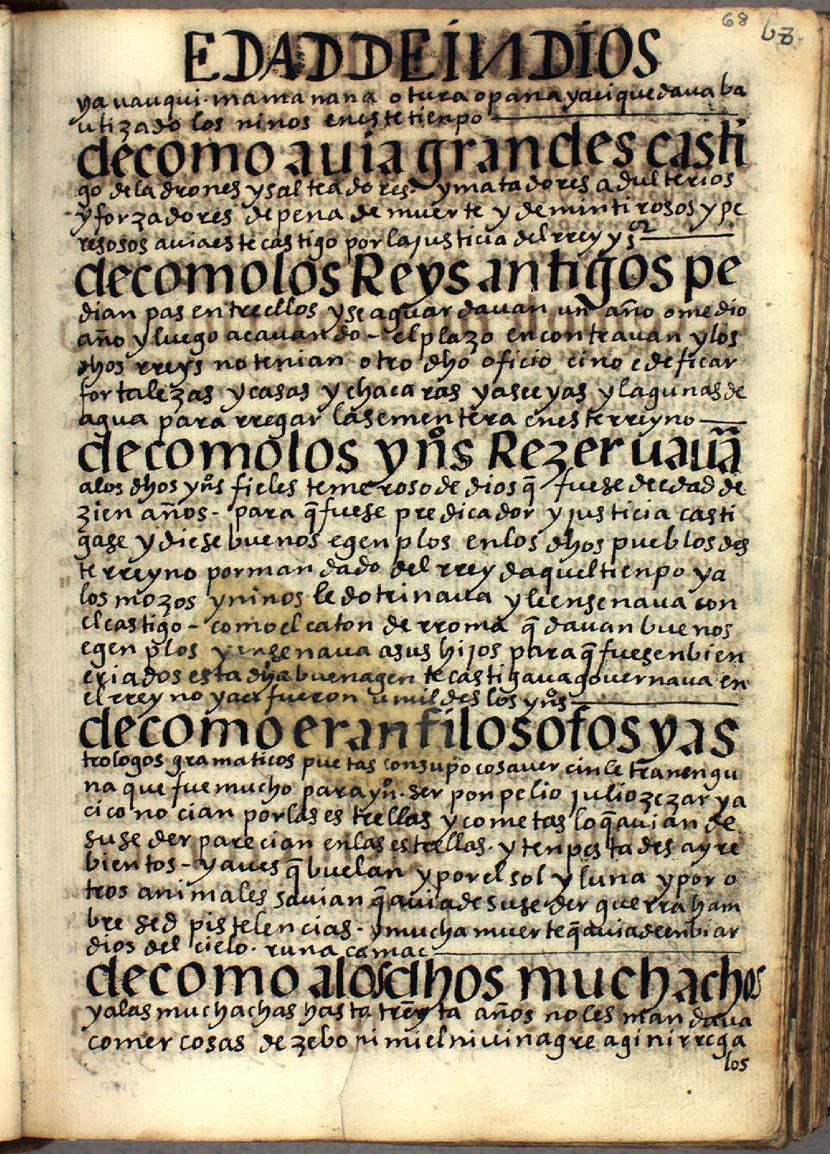 68 68
EDAD DE INDIOS
ya uauqui. mama nana o tura o pana y aci quedaua ba
utizado los ninos en este tienpo
de como auia grandes casti
go de ladrones y salteadores. y matadores adulterios
y forzadores de pena de muerte y de mintirosos y pe
resosos auia este castigo por la justicia del rrey y sr
de como los Reys antigos pe
dian pas entrellos y se aguardauan un año o medio
año y luego acauando - el plazo encontrauan y los
dhos rreys no tenian otro dho oficio cino edeficar
fortalezas y casas y chacaras y aseeyas y lagunas de
agua para rregar la sementera en este rreyno
de como los yns Rezeruauã
a los dhos yns fieles temeroso de dios q̃ fuese de edad de
zien años - para q̃ fuese predicador y justicia casti
gase y diese buenos egenplos en los dhos pueblos des
te rreyno por mandado del rrey daquel tienpo ya
los mozos y ninos le dotrinaua y le ensenaua con
el castigo - como el caton de rroma q̃ dauan buenos
egenplos y ensenaua a sus hijos para q̃ fuesen bien
criados esta dha buena gente castigaua gouernaua en
el rreyno y aci fueron umildes los yns
de como eran filosofos y as
trologos gramaticos puetas con su poco sauer cin letra nengu
na que fue mucho para yn. ser ponpelio julio zezar y a
ci conocian por las estrellas y cometas lo q̃ auian de
suseder parecian en las estrellas. y tenpestades ayre
bientos - y aues q̃ buelan y por el sol y luna y por o
tros animales sauian q̃ auia de suseder guerra ham
bre sed pistelencias. y mucha muerte q̃ auia de enbiar
dios del cielo. runa camac
de como a los dhos muchachos
y a las muchachas hasta treynta años no les mandaua
comer cosas de zebo ni miel ni uinagre agi ni rrega
los